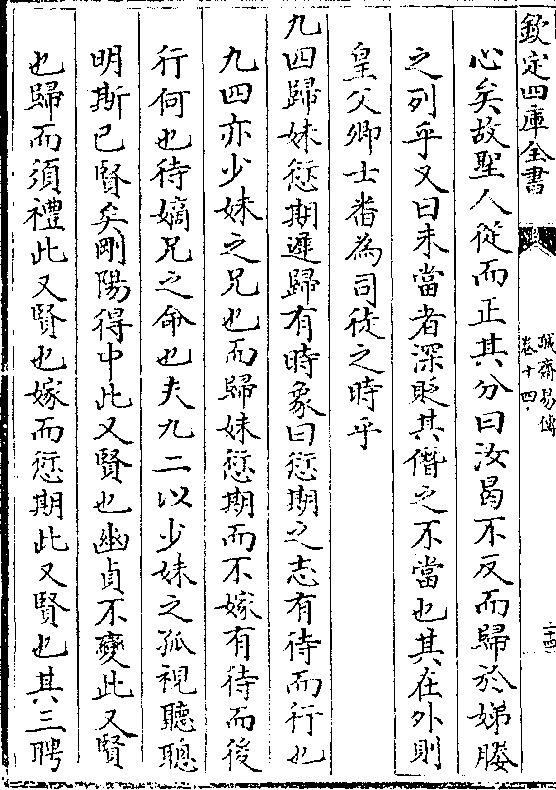 欽定四庫全書
誠齋易傳
卷十四
二十四
心矣故聖人從而正其分曰汝曷不反而歸於娣媵
之列乎又曰未當者深貶其僭之不當也其在外則
皇父卿士畨為司徒之時乎
九四歸妹愆期遲歸有時象曰愆期之志有待而行也
九四亦少妹之兄也而歸妹愆期而不嫁有待而後
行何也待嫡兄之命也夫九二以少妹之孤視聽聰
明斯已賢矣剛陽得中此又賢也幽貞不變此又賢
也歸而須禮此又賢也嫁而愆期此又賢也其三聘